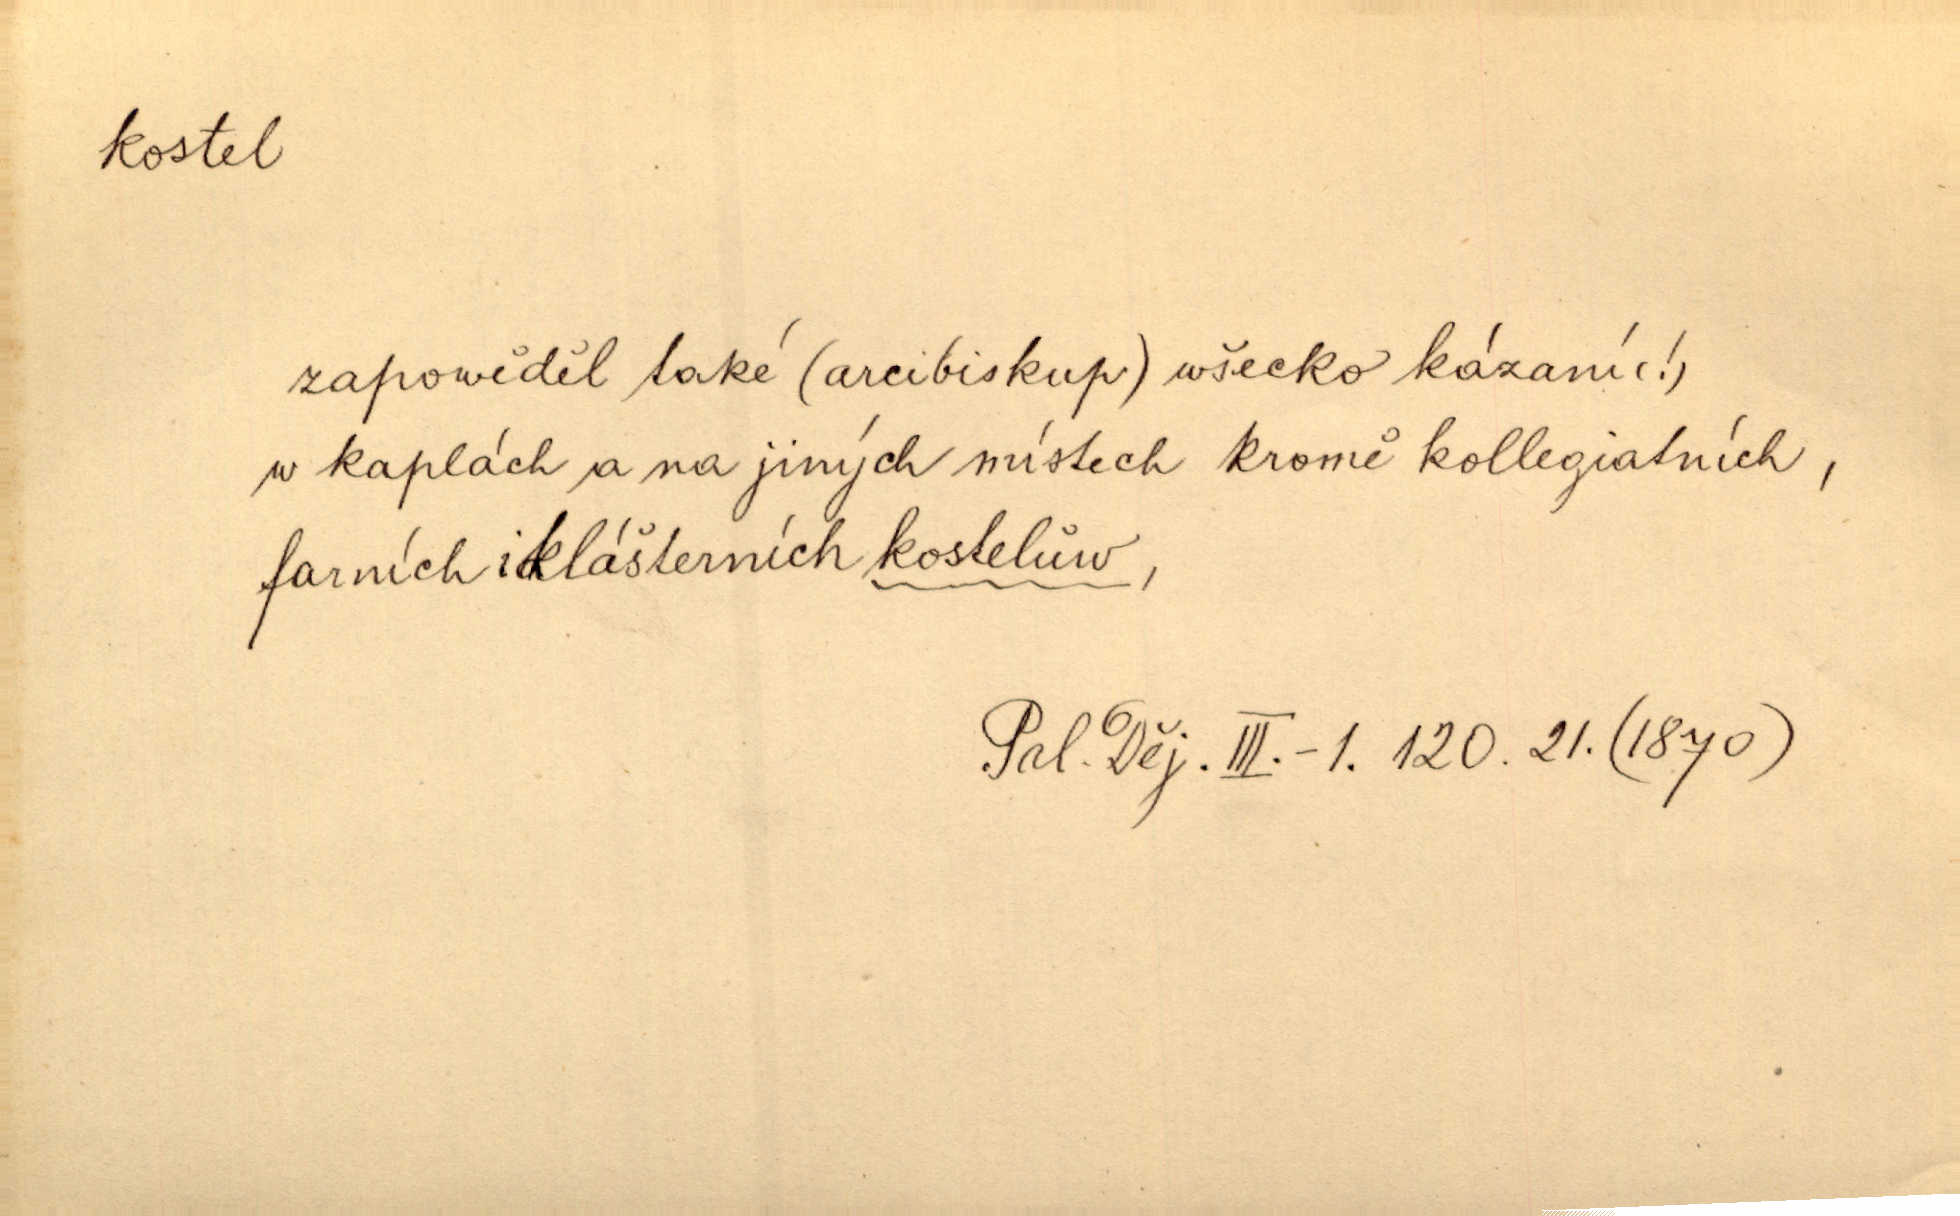 kostel
zapowěděl také (arcibiskup) wšecko kázaní(!)
w kaplách a na jiných místech kromě kollegiatních,
farních i klášterních kostelůw,
Pal. Děj. III.-1. 120. 21. (1870)